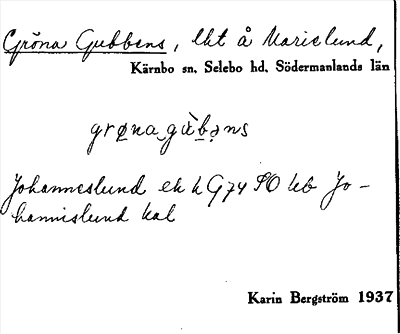 Gröna Gubbens, lht å Marielund,
Kärnbo sn, Selebo hd, Södermanlands län
grøna gùbəns
Johanneslund ek h G74 SO kb Jo-
hannislund kal
Karin Bergström 1937